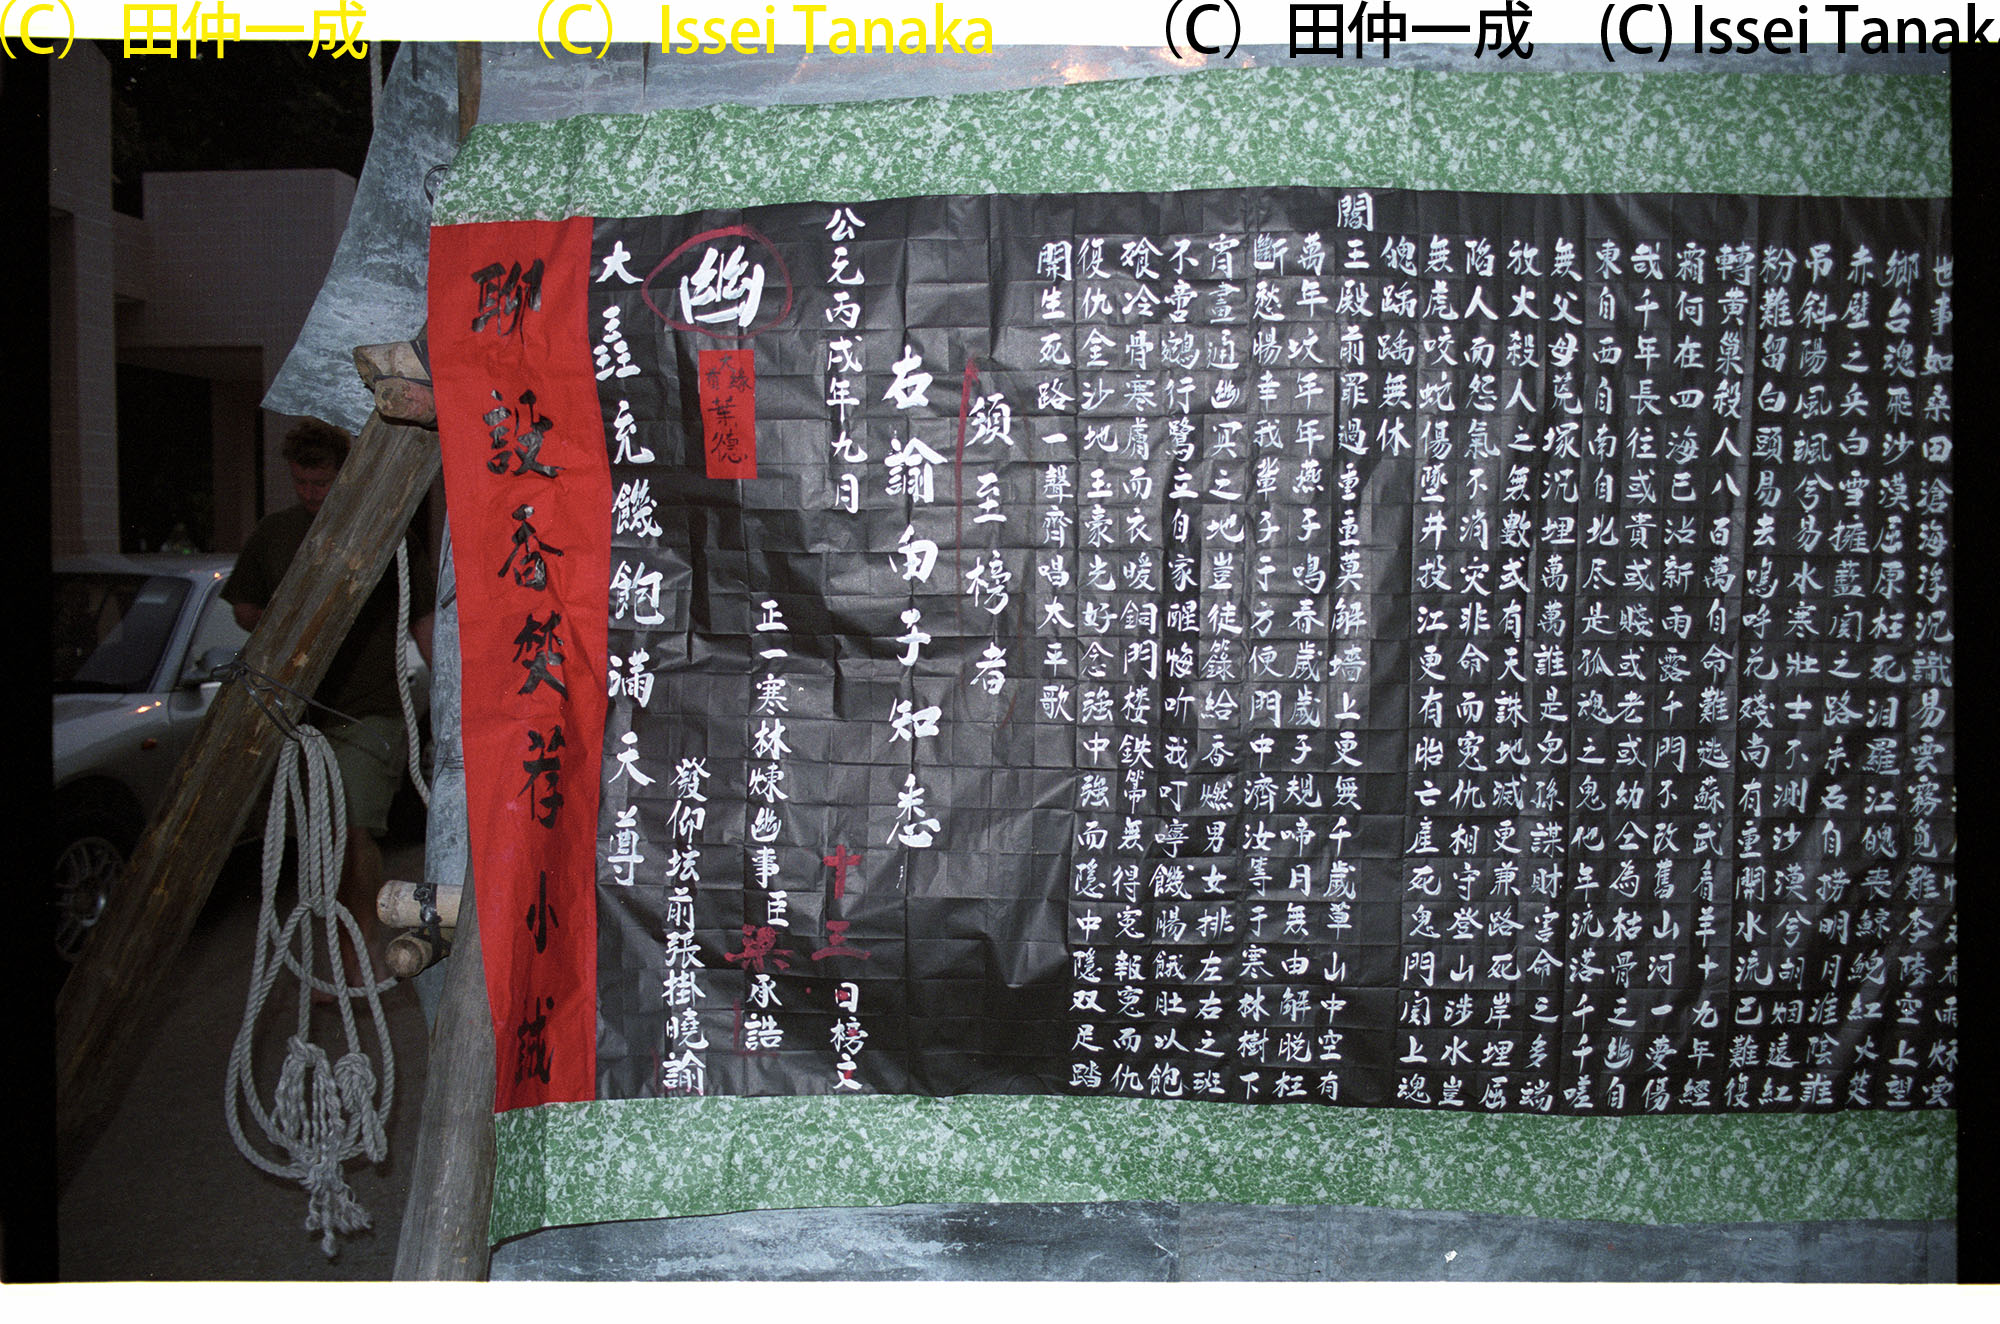 世事如桑田滄海浮沉識易雲霧覓難李陵空上望
鄉台魂飛沙漠屈原枉死汨羅江魄喪鯨鯢紅火焚
赤壁之兵白雪擁藍関之路朱石自撈明月淮陰誰
吊斜陽風颯兮易水寒壯士不測沙漠兮胡烟遠紅
粉難留白頭易去嗚呼花殘尚有重開水流已難復
轉黃巢殺人八百萬自命難逃蘇武看羊十九年經
霜何在四海已沾新雨露千門不改舊山河一夢傷
哉千年長往或貴或賤或老或幼仝為枯骨之幽自
東自西自南自北尽是孤魂之鬼他年流落千千嗟
無父母荒塚沉埋萬萬誰是兒孫謀財害命三多端
放火殺人之無數或有天誅地滅更兼路死岸埋屈
陷人而怨氣不消灾非命而寃仇相守登山涉水豈
無虎咬蛇傷墜井投江更有胎亡產死鬼門関上魂
魄踽踽無休
閻王殿前罪過重重莫解墻上更無千歲草山中空有
萬年坟年年燕子鳴春歲歲子規啼月無由解脱枉
斷愁腸幸我輩子于方便門中濟汝等于寒林樹下
宵晝通幽冥之地豈徒籙給香燃男女排左右之班
不啻鵷行鷺立自家醒悔听我叮嚀饑腸餓肚以飽
飱冷骨寒膚而衣暖銅門楼鉄箒無得寃報寃而仇
復仇金沙地玉豪光好念強中強而隱中隱双足踏
開生死路一聲齊唱太平歌
須至榜者
右諭由子知悉
公元丙戌年九月十三日榜文
正一寒林煉幽事臣梁承誥
幽
發仰坛前張掛曉諭
大圣充饑飽滿天尊
聊設香焚荐小誠
(C) 田仲一成 (C) Issei Tanaka (C) 田仲一成 (C) Issei Tanaka